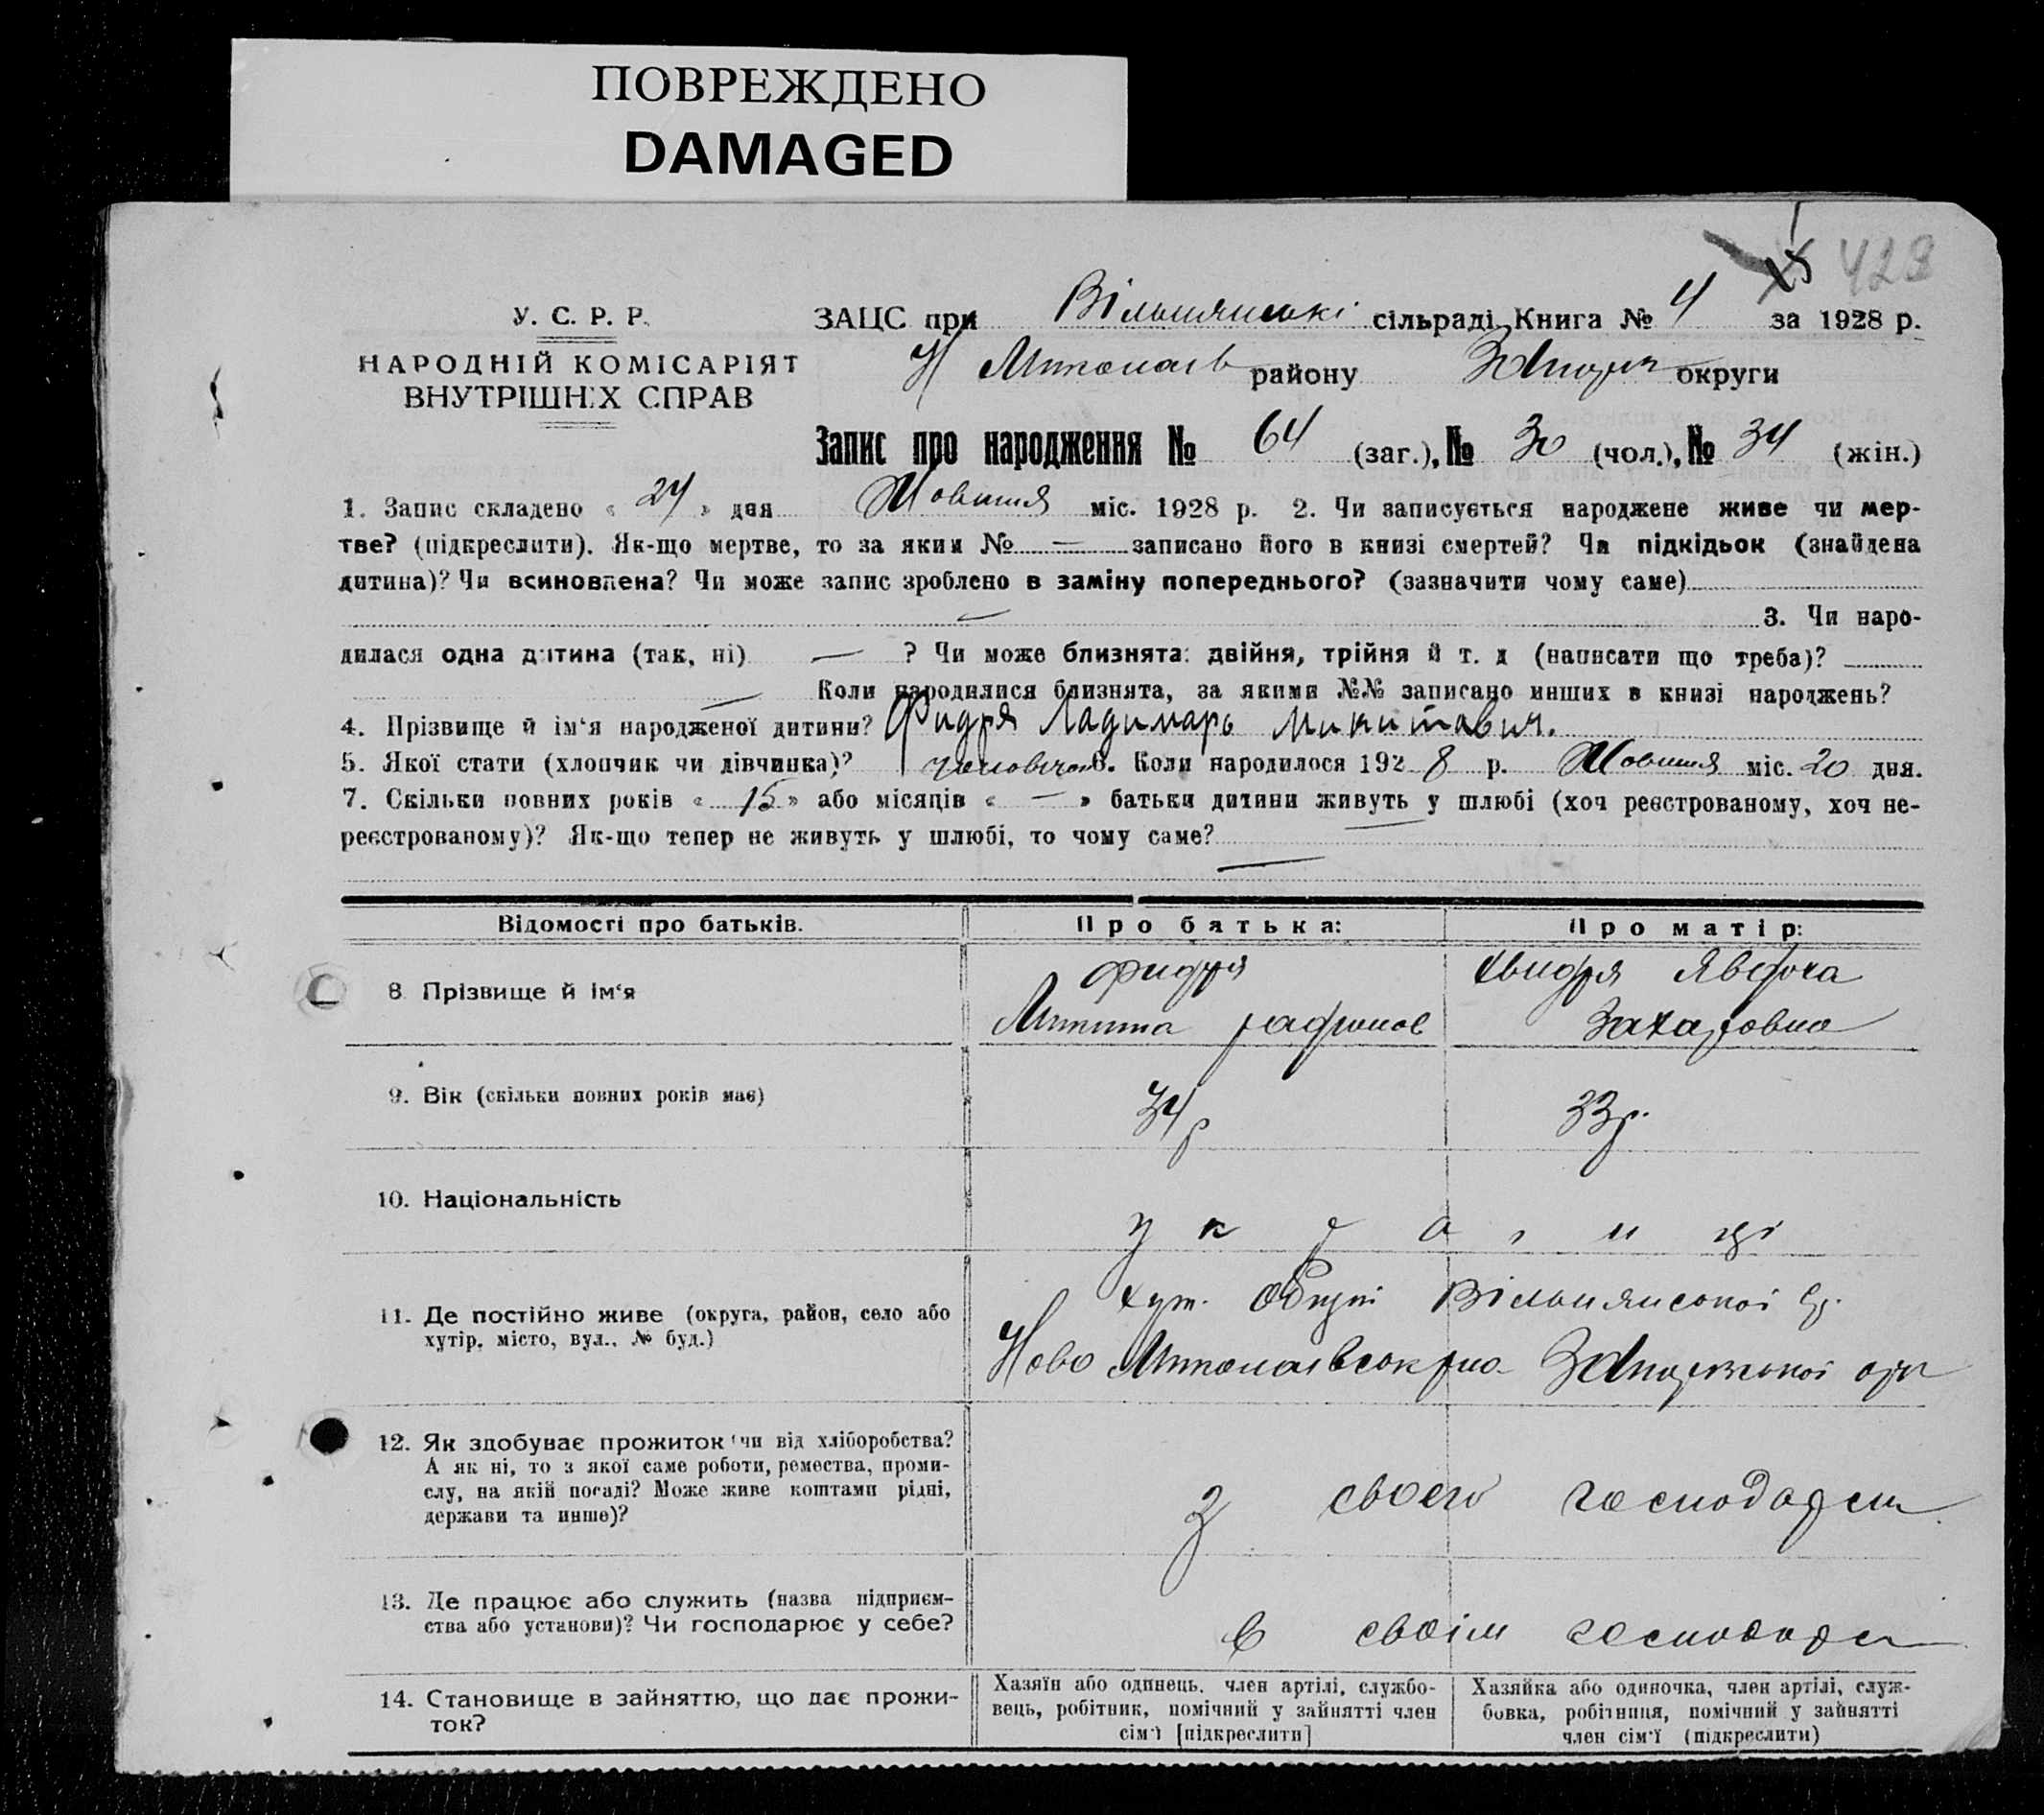 ПОВРЕЖДЕНО
DAMAGED
428
У. С. Р. Р.
НАРОДНІЙ КОМІСАРІЯТ
ВНУТРІШНІХ СПРАВ
ЗАЦС при Вільнянські сільраді Книга № 4 за 1928 р.
Н району округи
Запис про народження № 64 (заг.), № 30 (чол.), № 34 (жін.)
1. Запис складено « 24 » дня Жовтня міс. 1928 р. 2. Чи записується народжене живе чи мер-
тве? (підкреслити). Як-що мертве, то за яким № — записано його в книзі смертей? Чи підкідьок (знайдена
дитина)? Чи всиновлена? Чи може запис зроблено в заміну попереднього? (зазначити чому саме)
— 3. Чи наро-
дилася одна дитина (так, ні) — ? Чи може близнята: двійня, трійня й т. д (написати що треба)?
— Коли народилися близнята, за якими №№ записано инших в книзі народжень?
4. Прізвище й ім‘я народженої дитини? Фидря Ладимарь Микитавич.
5. Якої стати (хлопчик чи дівчинка)? 6. Коли народилося 1928 р. Жовтня міс. 20 дня.
7. Скільки повних років « 15 » або місяців « — » батьки дитини живуть у шлюбі (хоч реєстрованому, хоч не-
реєстрованому)? Як-що тепер не живуть у шлюбі, то чому саме?
—
Відомості про батьків. Про батька: Про матір:
8 Прізвище й ім‘я
Фидря Хвидря
Микита Захаровна
9. Вік (скільки повних років має) 34р 33р.
10. Національність
у к р а ї н ці
11. Де постійно живе (округа, район, село або
хутір, місто, вул., № буд.)
хут. Вільнянської
Ново
12. Як здобуває прожиток чи від хліборобства?
А як ні, то з якої саме роботи, ремества, проми-
слу, на якій посаді? Може живе коштами рідні,
держави та инше)?
З своего господарст
13. Де працює або служить (назва підприєм-
ства або установи)? Чи господарює у себе?
в своїм господарст
14. Становище в зайняттю, що дає прожи-
ток?
Хазяїн або одинець, член артілі, службо-
вець, робітник, помічний у зайнятті член
сім‘ї [підкреслити]
Хазяйка або одиночка, член артілі, служ-
бовка, робітниця, помічний у зайнятті
член сім‘ї (підкреслити)